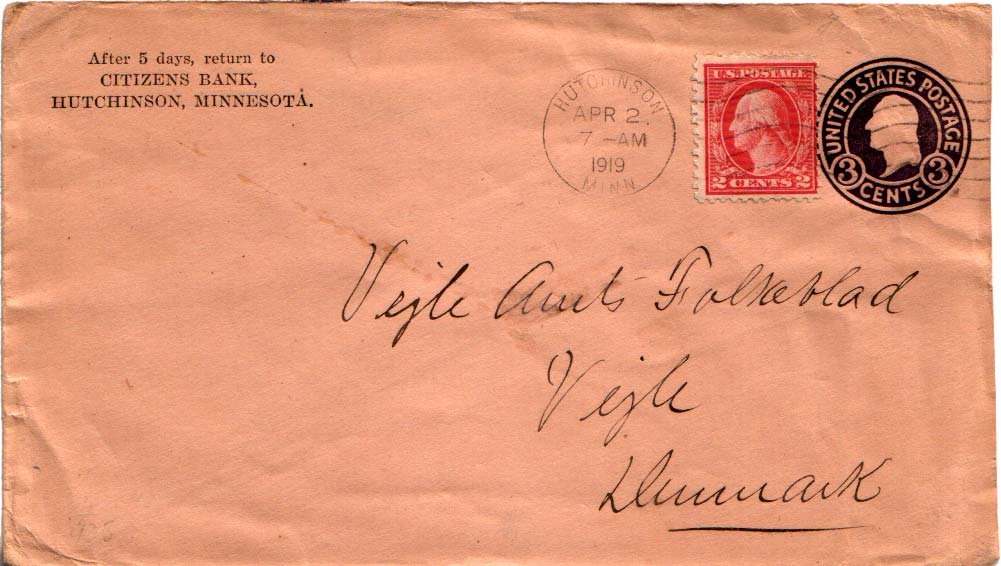 After 5 days, return to
CITIZENS BANK,
HUTCHINSON, MINNESOTA.
HUTCHINSON
APR 2
7 -AM
1919
MINN
U.S. POSTAGE
2 CENTS 2
UNITED STATES POSTAGE
3 CENTS 3
Vejle Amts Folkeblad
Vejle
Denmark